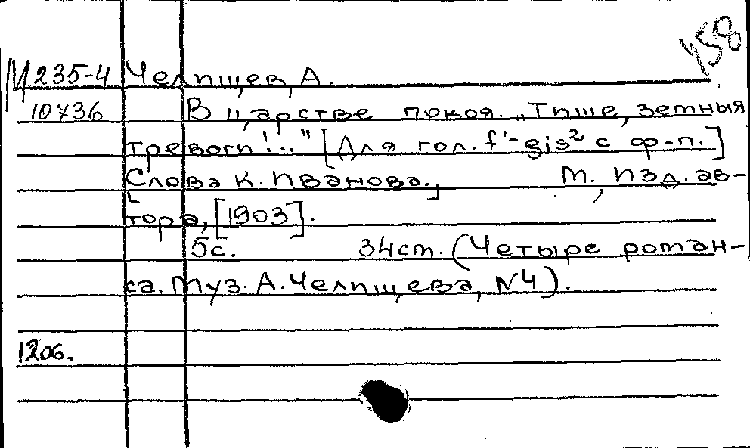 458
М 235-4 Челищев, А.
10736 В царстве покоя. „Тише, земныя
тревоги!.." [Для гол. f'-gis² с ф-п.]
Слова К. Иванова. М., изд. ав-
тора, [1903].
5с. 34см. (Четыре роман-
са. Муз. А. Челищева, №4).
1206.